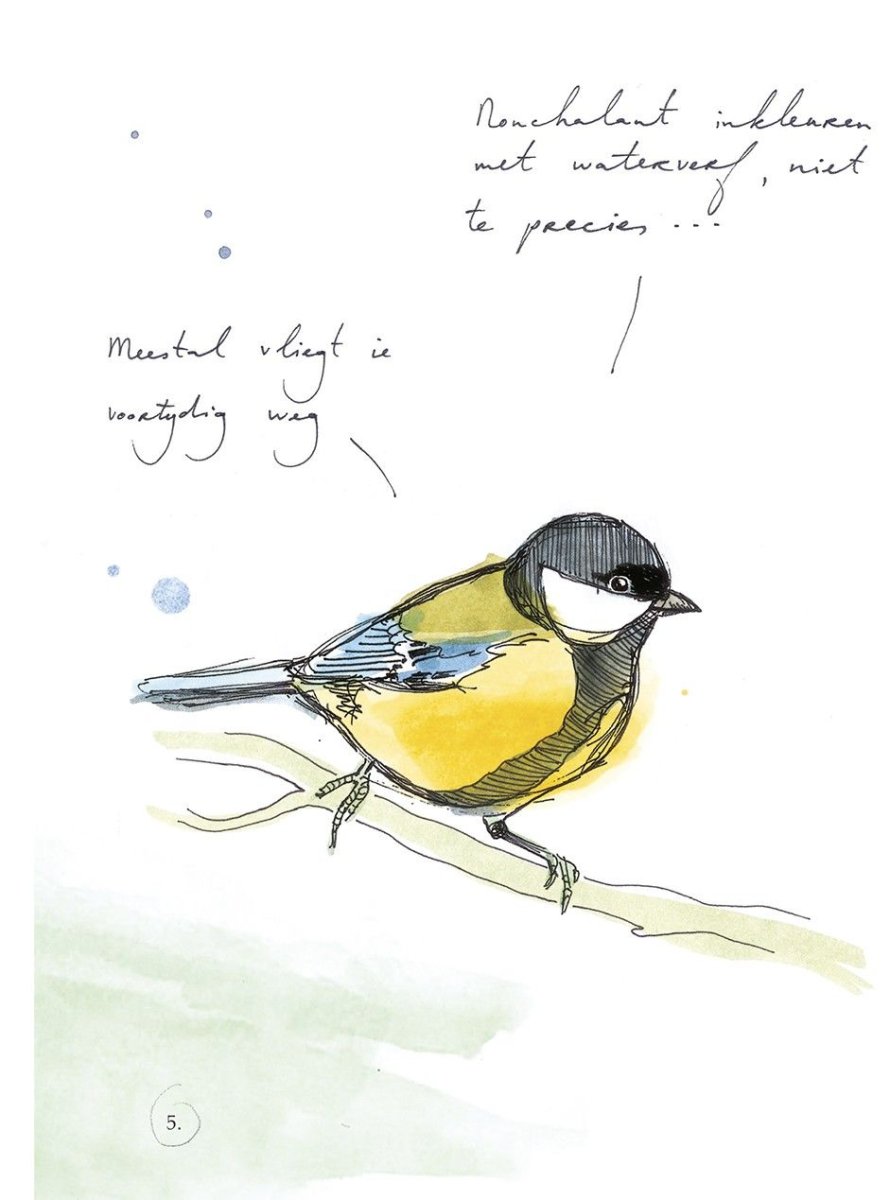 Nonchalant inkleuren
met waterverf, niet
te precies ...
Meestal vliegt ie
voortydig weg
5.